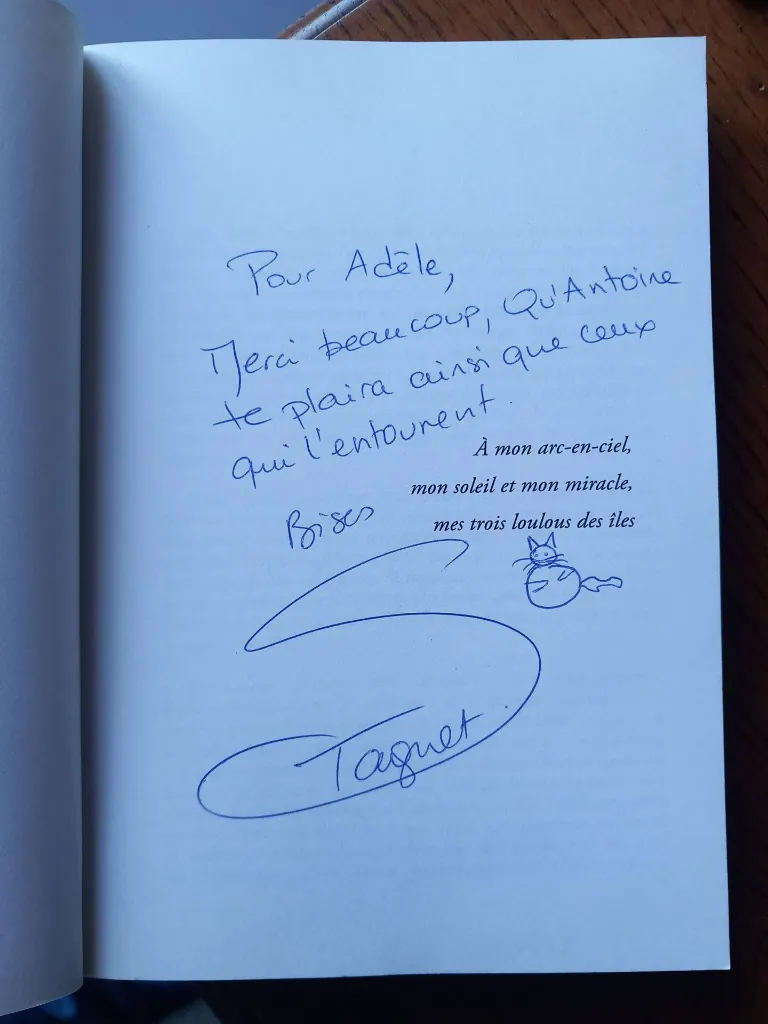 Pour Adèle,
Merci beaucoup, Qu'Antoine
te plaira ainsi que ceux
qui l'entourent.
À mon arc-en-ciel,
mon soleil et mon miracle,
mes trois loulous des îles
Bises
S Taquet.